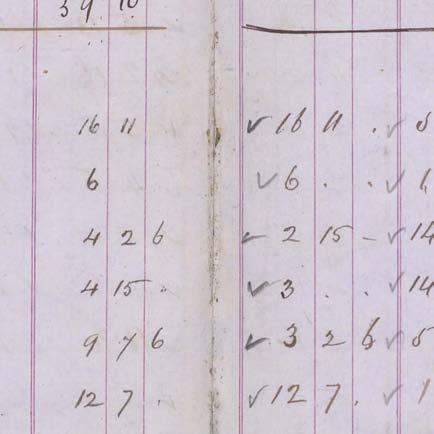 39 10
16 11 ✓ 16 11 . ✓
6 ✓ 6 . . ✓
4 2 6 ✓ 2 15 - ✓ 14
4 15 . ✓ 3 . . ✓ 14
9 7 6 ✓ 3 2 6 ✓
12 7 . ✓ 12 7 . ✓ 1